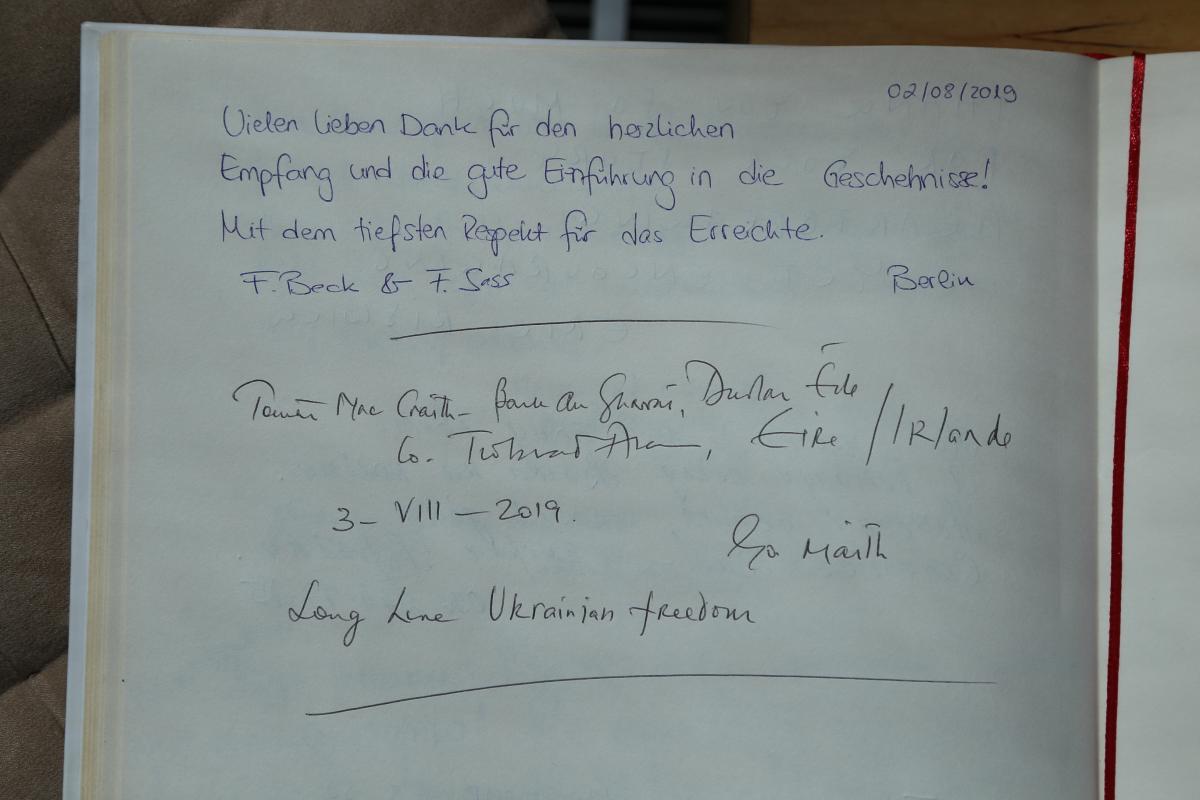 02/08/2019
Vielen lieben Dank für den herzlichen
Empfang und die gute Einführung in die Geschehnisse!
Mit dem tiefsten Respekt für das Erreichte.
F. Beck & F. Sass Berlin
Mac Craith - an
Co. Éire / Irlande
3 - VIII - 2019.
Go Maith
Long Live Ukrainian freedom